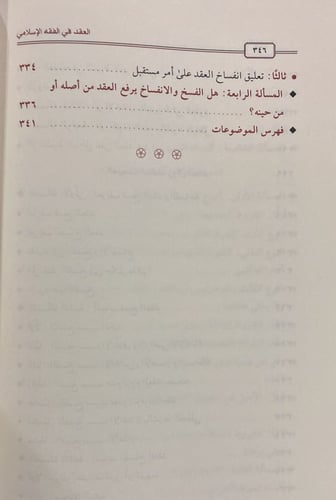 العقد في الفقه الإسلامي
٣٤٦
• ثالثًا: تعليق انفساخ العقد على أمر مستقبل ............ ٣٣٤
◆ المسألة الرابعة: هل الفسخ والانفساخ يرفع العقد من أصله أو
من حينه؟ ............ ٣٣٦
◆ فهرس الموضوعات ............ ٣٤١